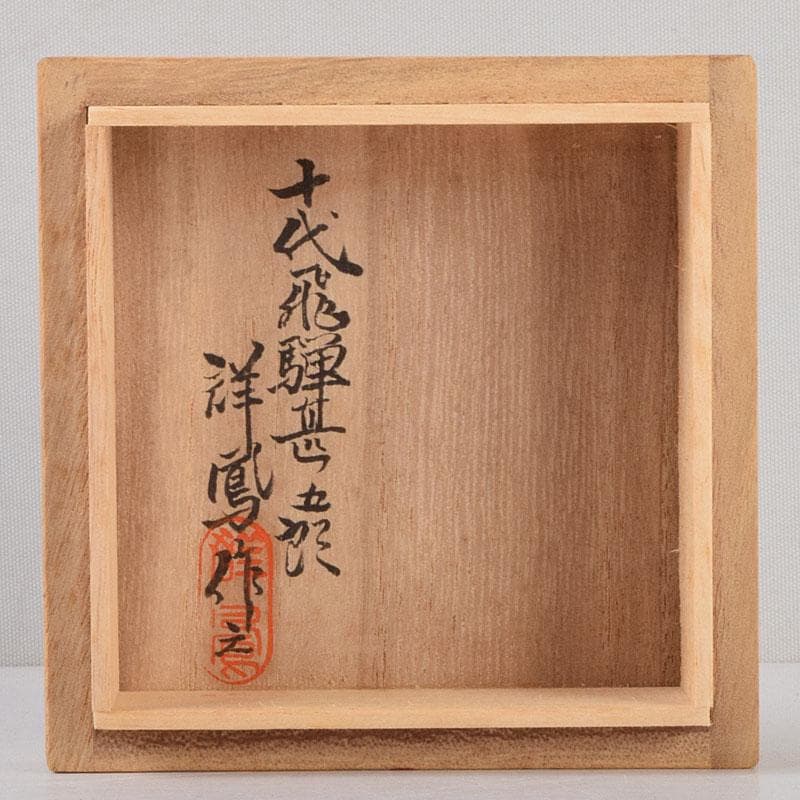 十代飛騨甚五郎
祥鳳作之